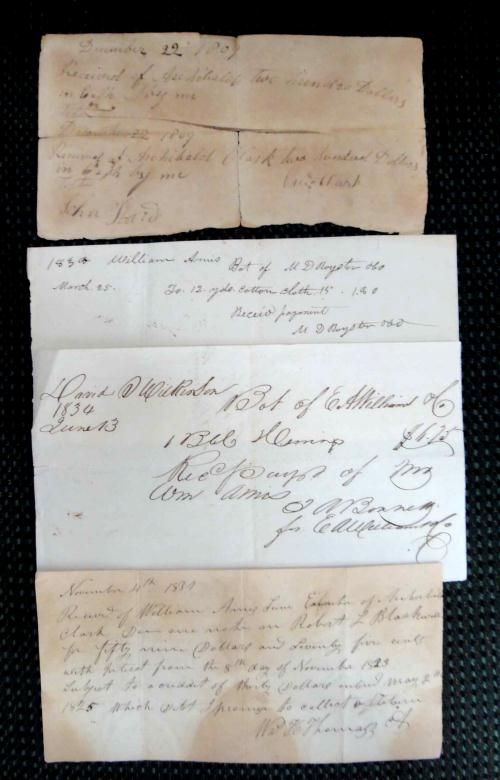 December 22 1809
Received of Archibald two hundred Dollars
in Cash by me
December 22 1809
Received of Archibald Clark two hundred Dollars
in Cash by me
John
1838 William Amis Bot of M D Royster & Co
March 25. To 12 yds Cotton Cloth 15 1.80
Receivd payment
M D Royster & Co
David Wilkinson Bot of E A William & Co
1834
June 13
1 Bbl Herrings $6.75
Recd payt of
Wm Amos
for E A Williams & Co
November 4th 1834
Received of William Amis Executor of Archibald
Clark Decd one note on Robert L Blackwell
for fifty nine Dollars and Seventy five cents
with interest from the 8th day of November 1823
Subject to a credit of thirty Dollars entered May 2nd
1825 Which Debt I promise to collect or Return
Wm H Thomas